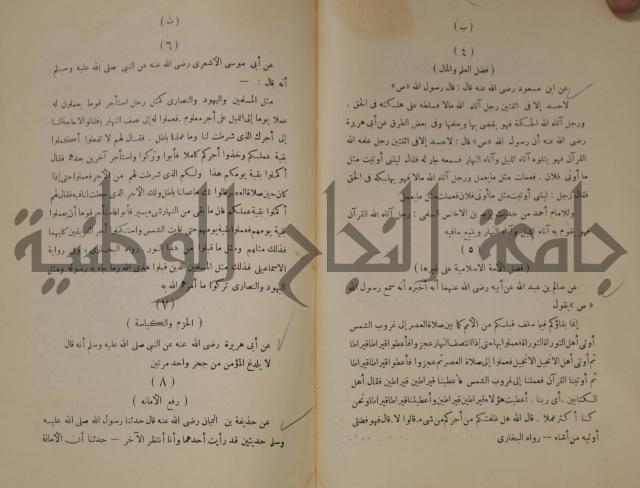 ( ب )
( ٤ )
( فضل العلم والمال )
عن ابن مسعود رضى الله عنه قال : قال رسول الله «ص»
لا حسد إلا فى اثنتين رجل آتاه الله مالا فسلطه على هلكته فى الحق .
ورجل آتاه الله الحكمة فهو يقضى بها ويعلمها وفى بعض الطرق عن أبى هريرة
رضى الله عنه أن رسول الله «ص» قال : لاحسد إلا فى اثنتين رجل علمه الله
القرآن فهو يتلوه آناء الليل وآناء النهار فسمعه جار له فقال ليتنى أوتيت مثل
ما أوتى فلان . فعملت مثل مايعمل ورجل آتاه الله مالا فهو يهلكه فى الحق
فقال رجل : ليتنى أوتيت مثل ماأوتى فلان فعملت مثل مايعمل
وللامام أحمد من حديث يزيد بن الاخنس السلمى : رجل آتاه الله القرآن
فهو يقوم به آناء الليل وآناء النهار ويتبع مافيه
( ٥ )
( فضل الأمة الاسلامية على غيرها )
عن سالم بن عبد الله عن أبيه رضى الله عنهما أنه أخبره أنه سمع رسول الله
« ص » يقول
إنما بقاؤكم فيما سلف قبلكم من الأمم كما بين صلاة العصر إلى غروب الشمس
أوتى أهل التوراة التوراة فعملوا بها حتى إذا انتصف النهار عجزوا فأعطوا قيراطا قيراطا
ثم أوتى أهل الانجيل الانجيل فعملوا إلى صلاة العصر ثم عجزوا فأعطوا قيراطا قيراطا
ثم أوتينا القرآن فعملنا إلى غروب الشمس فأعطينا قيراطين قيراطين فقال أهل
الكتابين . أى ربنا . أعطيت هؤلاء قيراطين قيراطين وأعطيتنا قيراطا قيراطا ونحن
كنا أكثر عملا . قال الله هل ظلمتكم من أجركم من شىء . قالوا لا . قال فهو فضلى
أوتيه من أشاء — رواه البخارى
( ث )
( ٦ )
عن أبى موسى الأشعرى رضى الله عنه عن النبى صلى الله عليه وسلم
أنه قال : —
مثل المسلمين واليهود والنصارى كمثل رجل استأجر قوما يعملون له
عملا يوما إلى الليل على أجر معلوم . فعملوا له إلى نصف النهار فقالوا لاحاجة لنا
إلى أجرك الذى شرطت لنا وما عملنا باطل . فقال لهم لا تفعلوا أكملوا
بقية عملكم وخذوا أجركم كاملا فأبوا وتركوا واستأجر آخرين بعدهم فقال
أكملوا بقية يومكم هذا ولكم الذى شرطت لهم من الأجر فعملوا حتى إذا
كان حين صلاة العصر قالوا لك ماعملنا باطل ولك الأجر الذى جعلت لنا فيه فقال لهم
أكملوا بقية عملكم فان ما بقى من النهار شىء يسير فأبوا فاستأجر قوما أن يعملوا
بقية يومهم فعملوا بقية يومهم حتى غابت الشمس واستكملوا أجر الفريقين كليهما
فذلك مثلهم ومثل ما قبلوا من هذا النور رواه البخارى . وفى رواية
الاسماعيلى فذلك مثل المسلمين الذين قبلوا هدى الله وما جاء به رسوله ومثل
اليهود والنصارى تركوا ما أمرهم الله به
( ٧ )
( الحزم والكياسة )
عن أبى هريرة رضى الله عنه عن النبى صلى الله عليه وسلم أنه قال
لا يلدغ المؤمن من جحر واحد مرتين
( ٨ )
( رفع الأمانه )
عن حذيفة بن اليمان رضى الله عنه قال حدثنا رسول الله صلى الله عليـه
وسلم حديثين قد رأيت أحدهما وأنا أنتظر الآخر — حدثنا أن الأمانة
جامعة النجاح الوطنية